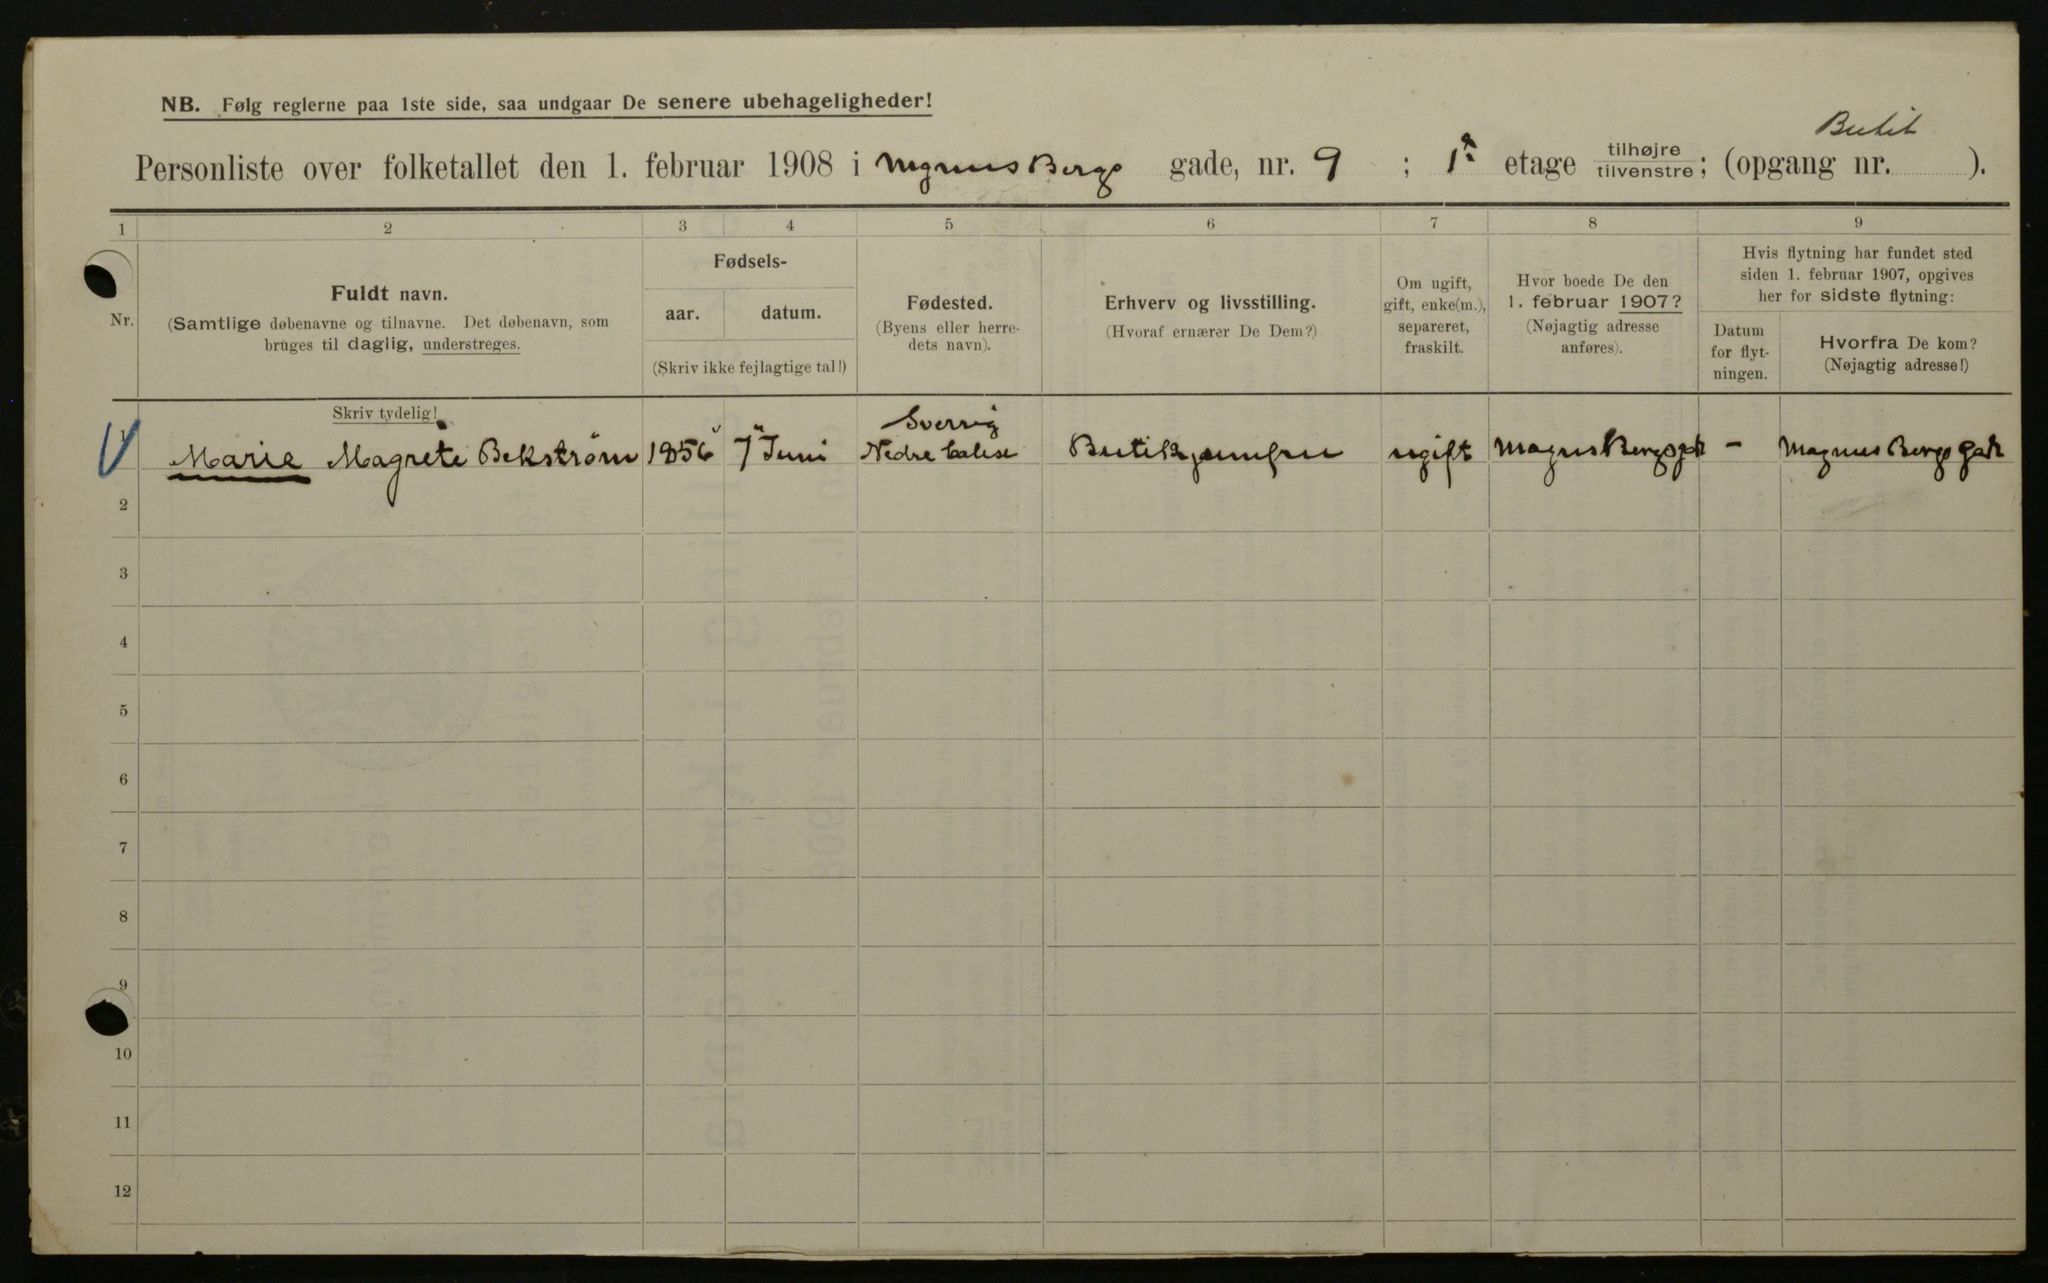 NB. Følg reglerne paa 1ste side, saa undgaar De senere ubehageligheder!
Butik
Personliste over folketallet den 1. februar 1908 i Magnus Bergs gade, nr. 9 ; 1ste etage tilhøjre tilvenstre; (opgang nr. ).
1 2 3 4 5 6 7 8 9
Nr.
Fuldt navn.
(Samtlige døbenavne og tilnavne. Det døbenavn, som
bruges til daglig, understreges.
Fødsels-
aar. datum.
(Skriv ikke fejlagtige tal!)
Fødested.
(Byens eller herre-
dets navn).
Erhverv og livsstilling.
(Hvoraf ernærer De Dem?)
Om ugift,
gift, enke(m.),
separeret,
fraskilt.
Hvor boede De den
1. februar 1907?
(Nøjagtig adresse
anføres).
Hvis flytning har fundet sted
siden 1. februar 1907, opgives
her for sidste flytning:
Datum
for flyt-
ningen.
Hvorfra De kom?
(Nøjagtig adresse!)
Skriv tydelig!
Sverrig
1 Marie Magrete Bekstrøm 1856 7 Juni Nedre ugift Magnus Bergsgt – Magnus Bergs gade
2
3
4
5
6
7
8
9
10
11
12